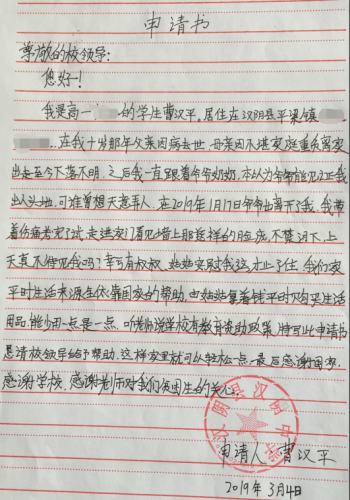 申请书
尊敬的校领导:
您好!
我是高一 的学生曹汉平。居住在汉阴县平梁镇
在我十岁那年父亲因病去世,母亲因不堪家庭重负离家
出走至今下落不明。之后我一直跟着爷爷奶奶,本以为爷爷能见证我
出人头地,可谁曾想天意弄人,在2019年1月17日爷爷也离开了我。我带
着伤痛考完了试,走进家门看见墙上那慈祥的脸庞,不禁泪下,上
天真不仁见我吗?幸亏有叔叔、姑姑安慰我这才止了住。我们家
平时生活来源全依靠国家的帮助,也姑姑拿着钱平时购买生活
用品,能少用一点是一点。听老师说学校有教育资助政策,特写此申请书
恳请校领导给予帮助,这样家里就可以轻松一点。最后感谢国家,
感谢学校,感谢老师对我们贫困生的关心。
汉阴县汉 中学
申请人:曹汉平
2019年3月4日